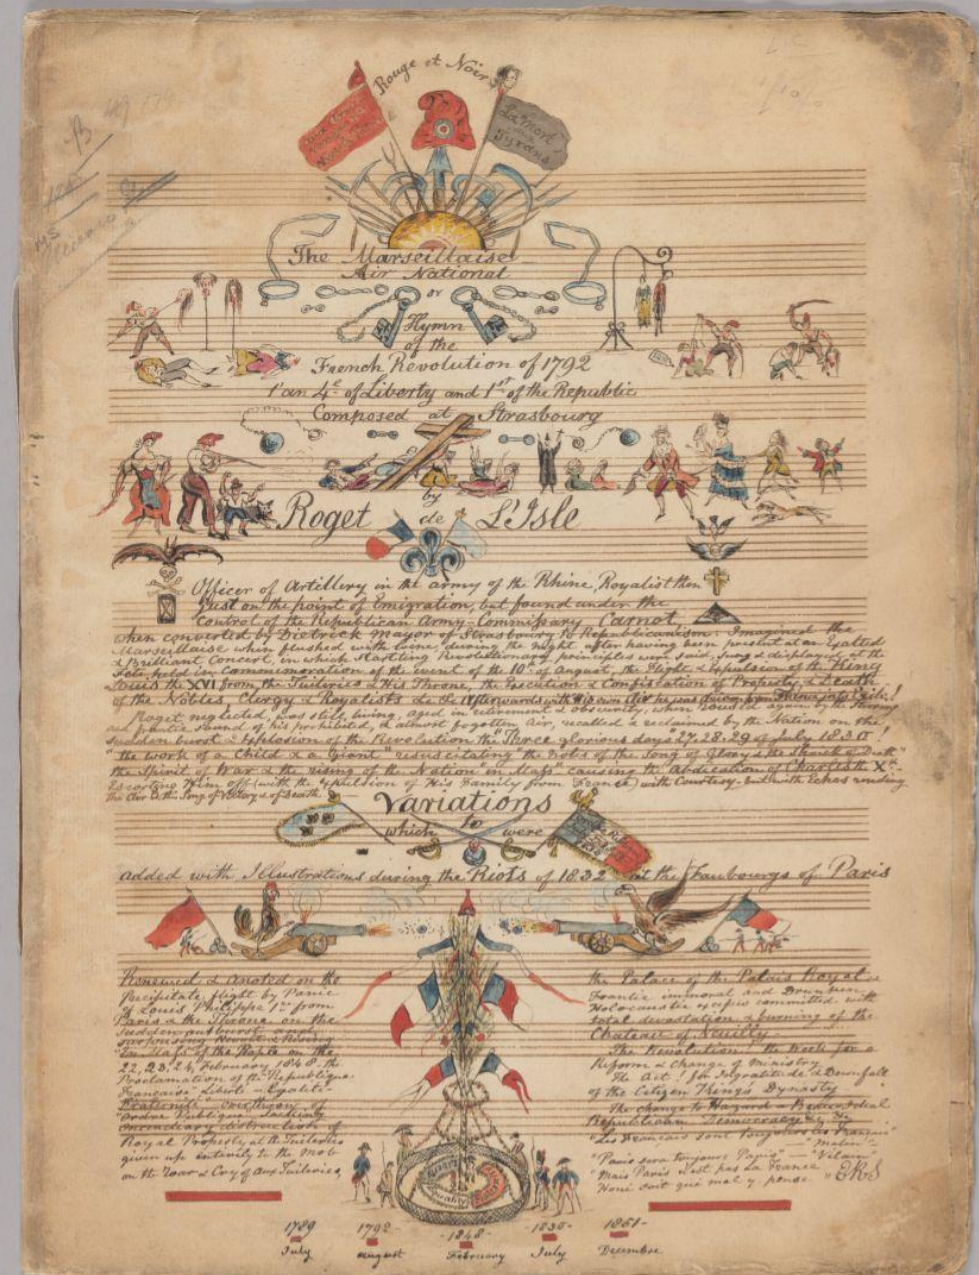 Rouge et Noir
La Mort
aux
Tyrans
The Marseillaise
Air National
or
Hymn
of the
French Revolution of 1792
l'an 4e of Liberty and 1st of the Republic
Composed at Strasbourg
by
Roget de L'Isle
Officer of Artillery in the army of the Rhine, Royalist then
Just on the point of Emigration, but found under the
Control of the Republican Army-Commissary Carnot,
when converted by Dietrick Mayor of Strasbourg to Republicanism: Imagined the
Marseillaise when flushed with wine, during the night after having been present at an Exalted
& Brilliant Concert, in which startling Revolutionary principles were said, sung & displayed, at the
Fete held in Commemoration of the event of the 10th of august, the flight & Expulsion of the King
Louis the XVI from the Tuileries & His Throne, the Execution & Confiscation of Property, & Death
of the Nobles, Clergy & Royalists &c &c Afterwards with his own Air he was driven from France into Exile!
Roget neglected, was still living, aged in retirement & obscurity, when roused again by the
and frantic sound of his prohibited, & almost forgotten Air, recalled & reclaimed by the Nation on the
sudden burst & Explosion of the Revolution the "Three glorious days" 27.28.29 of July 1830!
the work of a Child & a Giant" resuscitating "the notes of the Song of Glory & the Shriek of Death"
the Spirit of War & the rising of the Nation "in Mass" causing the abdication of Charles the Xth
Escorting Him off (with the Expulsion of His Family from France) with Courtesy - but with Echos rending
the Air with the Song of Victory & of Death
Variations
to
which were
added with Illustrations during the Riots of 1832 at the Faubourgs of Paris
Renewed & Anoted on the
Precipitate flight by Panic
of Louis Philippe 1st from
Paris & the Throne, on the
Sudden outburst and
surprising Revolt & Rising
"En Mass" of the People on the
22, 23, 24, February 1848. the
Proclamation of the Republique
Francaise - Liberté - Egalité -
Fraternité - overthrow of
"ordre Publique" -
incendiary distruction of
Royal Property at the Tuileries
given up entirely to the Mob
on the War & Cry of Aux Tuileries,
the Palace of the Palais Royal
Frantic immoral and Drunken
Holocaustic excesses committed with
total devastation & burning of the
Chateau of Neuilly
The Revolution! the Work for a
Reform & Change of Ministry
The Act! for Ingratitude & Downfall
of the Citizen King's Dynasty
The change to Hazard a Ideal
Republican Democracy
"Les Francais sont toujours les Francais"
— "Malin" —
"Paris sera toujours Paris" — "Vilain"
"Mais Paris n'est pas la France"
Honi soit qui mal y pense "ERS
1789 1792 - 1848 - 1830 - 1851 -
July August February July Decembre